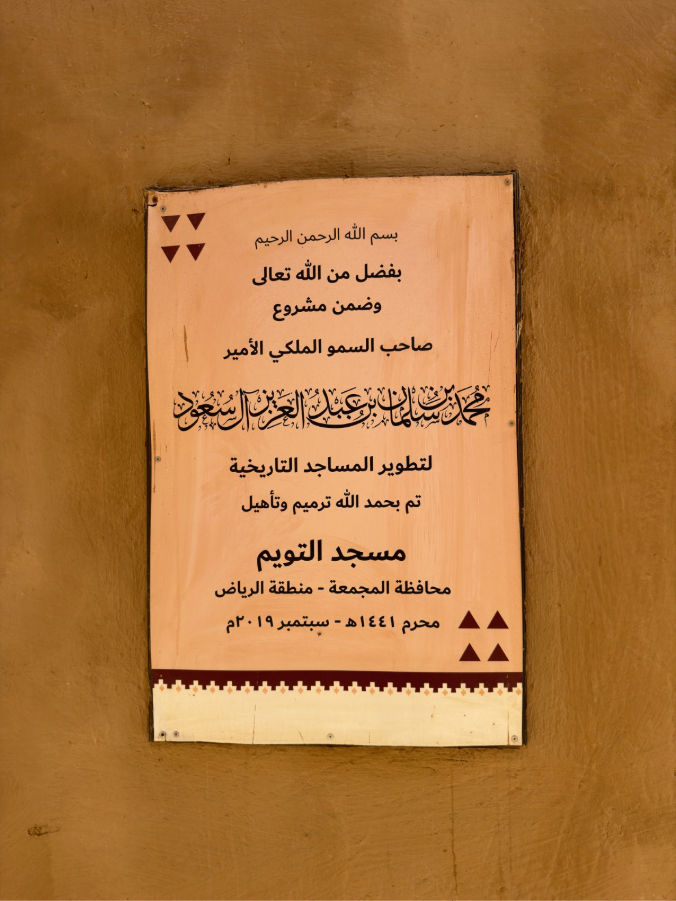 بسم الله الرحمن الرحيم
بفضل من الله تعالى
وضمن مشروع
صاحب السمو الملكي الأمير
محمد بن سلمان بن عبد العزيز آل سعود
لتطوير المساجد التاريخية
تم بحمد الله ترميم وتأهيل
مسجد التويم
محافظة المجمعة - منطقة الرياض
محرم ١٤٤١هـ - سبتمبر ٢٠١٩م